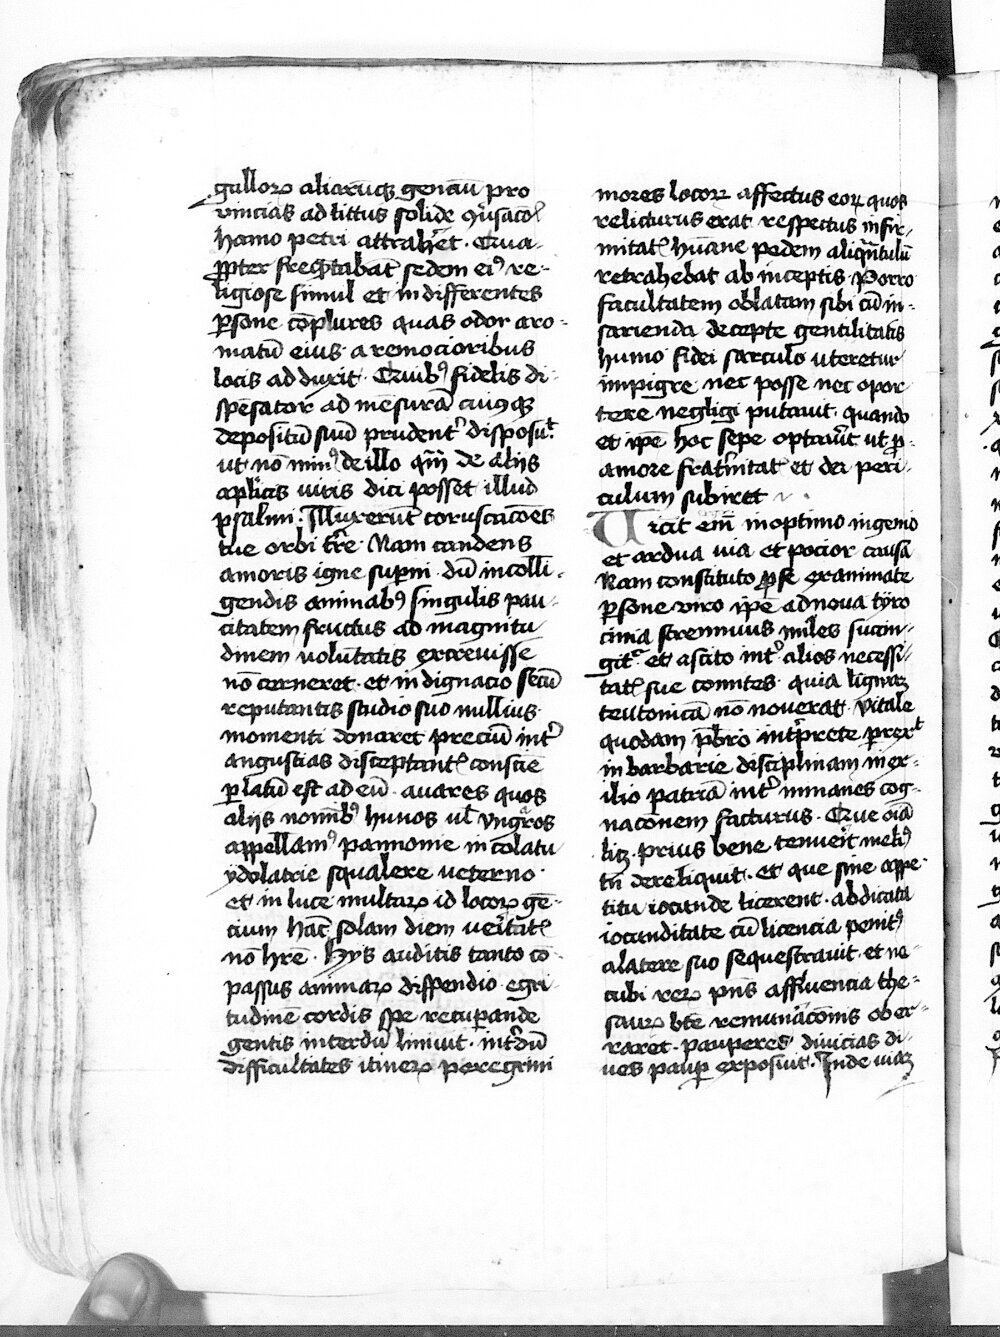 gulloꝝ aliarūqꝫ genciū pro
vincias ad littus solide ꝯūsacōꝭ
hamo petri attrah̄et · Qua-
ꝓpter freq̄ntabāt sedem eiꝰ re-
ligiose simul et indifferentes
ꝑsone cōplures quas odor aro-
matū eius a remocioribus
locis adduxit · Quibꝰ fidelis di-
spēsator ad mēsurā cuiusqꝫ
depositū suū prudent᷒ disposuᷓt
ut nō minꝰ de illo qm̄ de alijs
aplicis viris dici posset illud
psalmi · Illuxerūt coruscacōes
tue orbi t᷒re Nam candens
amoris igne suꝑni · dū in colli-
gendis animabꝰ singulis pau-
citatem fructus ad magnitu-
dinem volūtatis excrevisse
nō cerneret · et indignacio secū
reputantis studio suo nullius
momenti donaret preciū int᷒
angustias disceptantꝭ consciē
ꝑlatū est ad eū · auares quos
alijs nomībꝰ hunos vl̄ vngaros
appellamꝰ pannonie incolatu
ydolatrie squalere veterno ·
et in luce multaꝝ id locoꝝ gē-
cium hāc solam diem veritatꝭ
nō hr̄e · Hys auditis tanto cō-
passus animaꝝ dispendio egri-
tudinē cordis spe recuꝑande
gentis interdū liniuit · int᷒dū
difficultates itineꝝ peregrini
mores locoꝝ affectus eoꝝ quos
relicturus erat respectus infir-
mitatꝭ hūane pedem aliqn̄tulū
retrahebat ab inceptis Porro
facultatem oblatam sibi cū in-
sarienda decepte gentilitatis
humo fidei sarculo uteretur
impigre nec posse nec opor
tere negligi putauit · quando
et ip̄e hoc sepe optauīt ut ꝓ
amore frat᷒nitatꝭ et dei peri-
culum subiret
Uicit em̄ in optimo ingenio
et ardua via et pocior causa
Nam constituto ꝓ se examinate
ꝑsone viro ip̄e ad noua tyro
cinia strennuus miles succin-
git᷒ et ascito int᷒ alios necessi-
tatꝭ sue comites · quia lignaꝫ
teutonicā nō noverat · vitale
quodam p̄bro int᷒prete ꝑrexᷓt
in barbarie disciplinam in ex-
ilio patriā int᷒ inmanes cog-
nacōnem facturus · Que oīa
lꝫ prius bene tenuerit meliꝰ
tn̄ dereliquit · et que sine appe-
titu iocunde licerent · abdicata
iocunditate cū licencia penitꝰ
a latere suo sequestrauit · et ne
cubi reꝝ pn̄s affluencia the-
sauꝝ bt̄e remunāconis ober-
raret · pauperes diuicias di-
ues pauꝑ exposuit · Inde viaꝫ